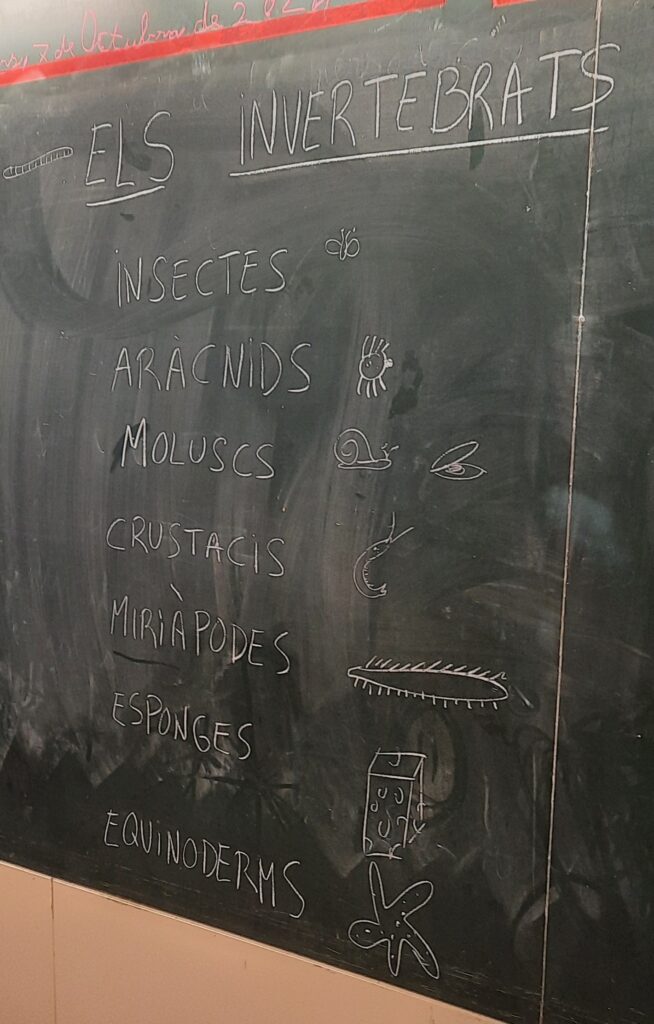 7 de Octubre de 2024
ELS INVERTEBRATS
INSECTES
ARÀCNIDS
MOLUSCS
CRUSTACIS
MIRIÀPODES
ESPONGES
EQUINODERMS